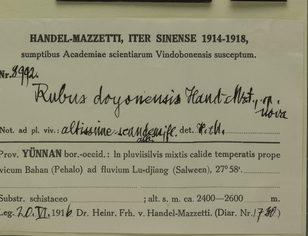 HANDEL-MAZZETTI, ITER SINENSE 1914-1918,
sumptibus Academiae scientiarum Vindobonensis susceptum.
Nr. 8992.
Rubus doyonensis Hand.-Mzt., n.
Not. ad pl. viv.: altissime scandens, fl. det.
Prov. YÜNNAN bor.-occid.: In pluviisilvis mixtis calide temperatis prope
vicum Bahan (Pehalo) ad fluvium Lu-djiang (Salween), 27° 58'.
Substr. schistaceo ; alt. s. m. ca. 2400—2600 m.
Leg. 20.VI. 1916 Dr. Heinr. Frh. v. Handel-Mazzetti. (Diar. Nr.